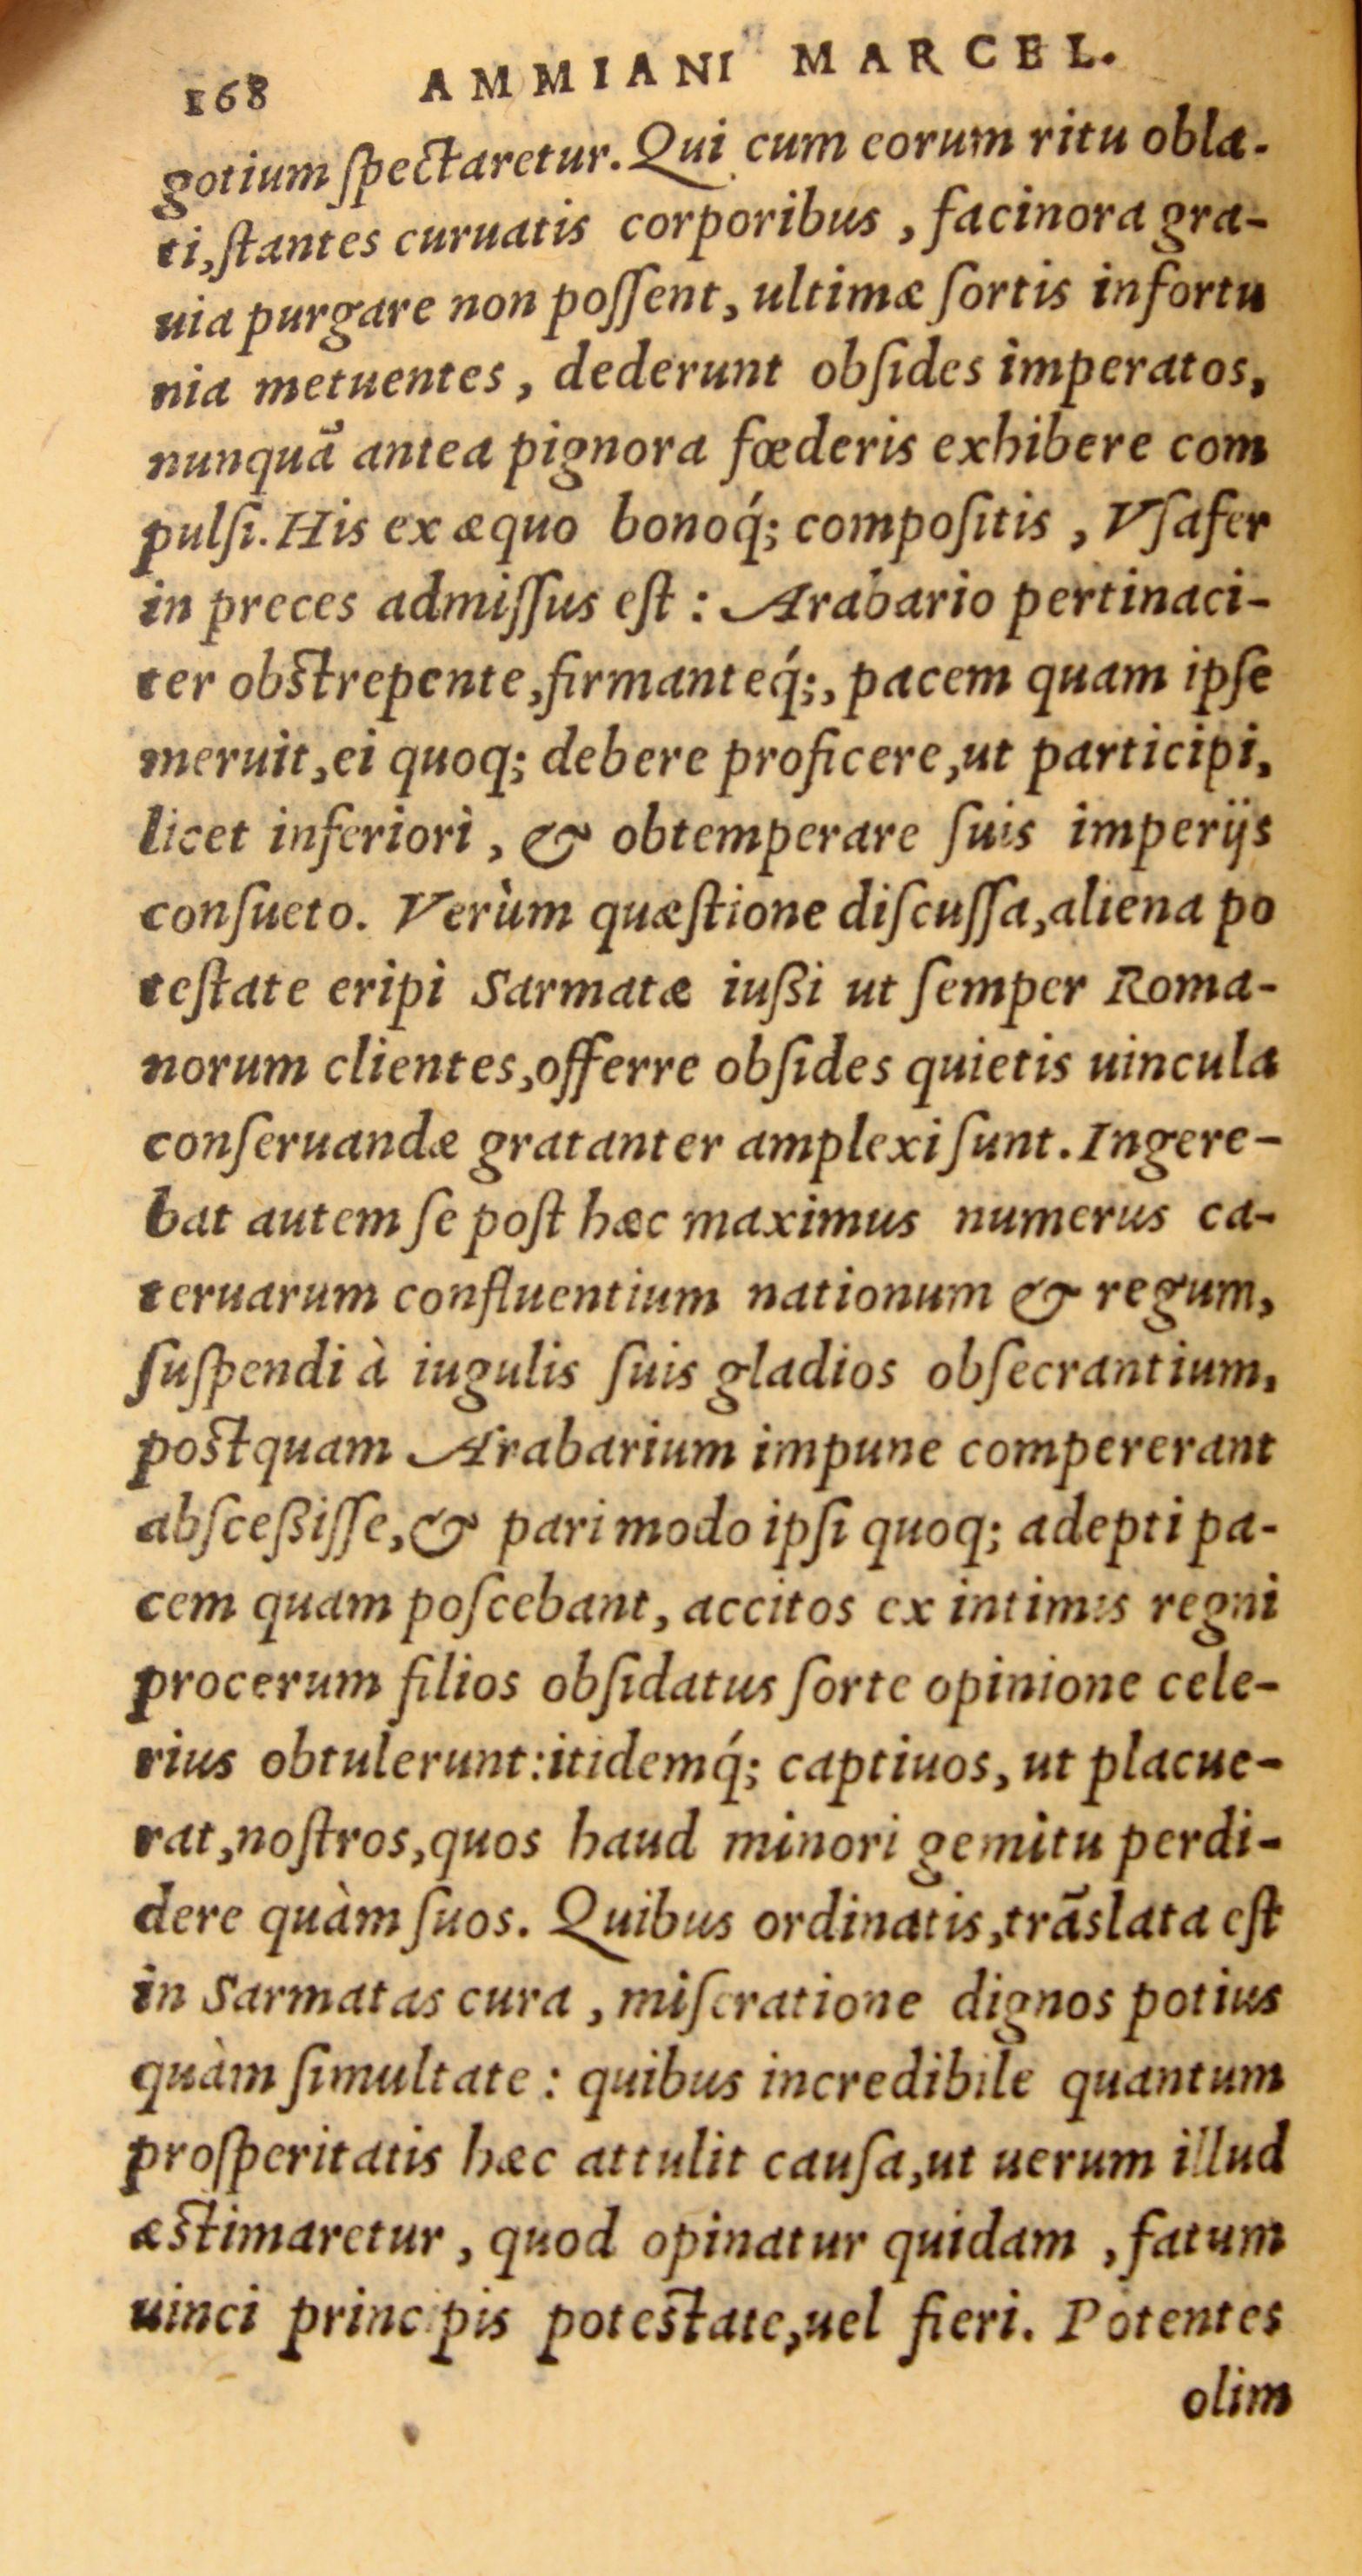 168 AMMIANI MARCEL.
gotium ſpectaretur. Qui cum eorum ritu obla-
ti, ſtantes curuatis corporibus, facinora gra-
uia purgare non poſſent, ultimæ ſortis infortu
nia metuentes, dederunt obſides imperatos,
nunquā antea pignora fœderis exhibere com
pulſi. His ex æquo bonoq́; compoſitis, Vſafer
in preces admiſſus eſt: Arabario pertinaci-
ter obſtrepente, firmanteq́;, pacem quam ipſe
meruit, ei quoq; debere proficere, ut participi,
licet inferiori, & obtemperare ſuis imperijs
conſueto. Verùm quæſtione diſcuſſa, aliena po
teſtate eripi Sarmatæ iußi ut ſemper Roma-
norum clientes, offerre obſides quietis uincula
conſeruandæ gratanter amplexi ſunt. Ingere-
bat autem ſe poſt hæc maximus numerus ca-
teruarum confluentium nationum & regum,
ſuſpendi à iugulis ſuis gladios obſecrantium,
poſtquam Arabarium impune compererant
abſceßiſſe, & pari modo ipſi quoq; adepti pa-
cem quam poſcebant, accitos ex intimis regni
procerum filios obſidatus ſorte opinione cele-
rius obtulerunt: itidemq́; captiuos, ut placue-
rat, noſtros, quos haud minori gemitu perdi-
dere quàm ſuos. Quibus ordinatis, trāslata eſt
in Sarmatas cura, miſeratione dignos potius
quàm ſimultate: quibus incredibile quantum
proſperitatis hæc attulit cauſa, ut uerum illud
æſtimaretur, quod opinatur quidam, fatum
uinci principis poteſtate, uel fieri. Potentes
olim